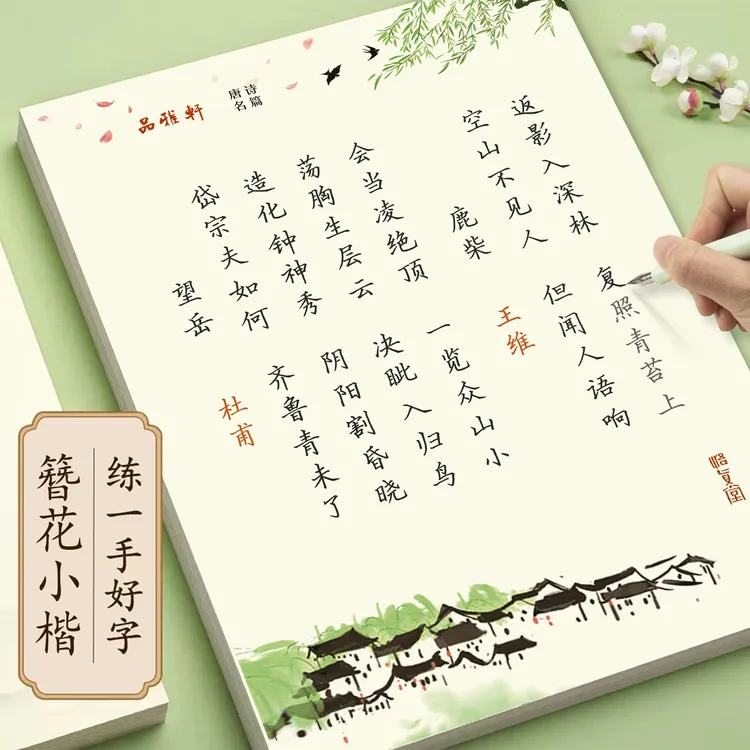 品雅軒
唐诗
名篇
望岳
杜甫
岱宗夫如何
齐鲁青未了
造化钟神秀
阴阳割昏晓
荡胸生层云
决眦入归鸟
会当凌绝顶
一览众山小
鹿柴
王维
空山不见人
但闻人语响
返影入深林
复照青苔上
簪花小楷
练一手好字